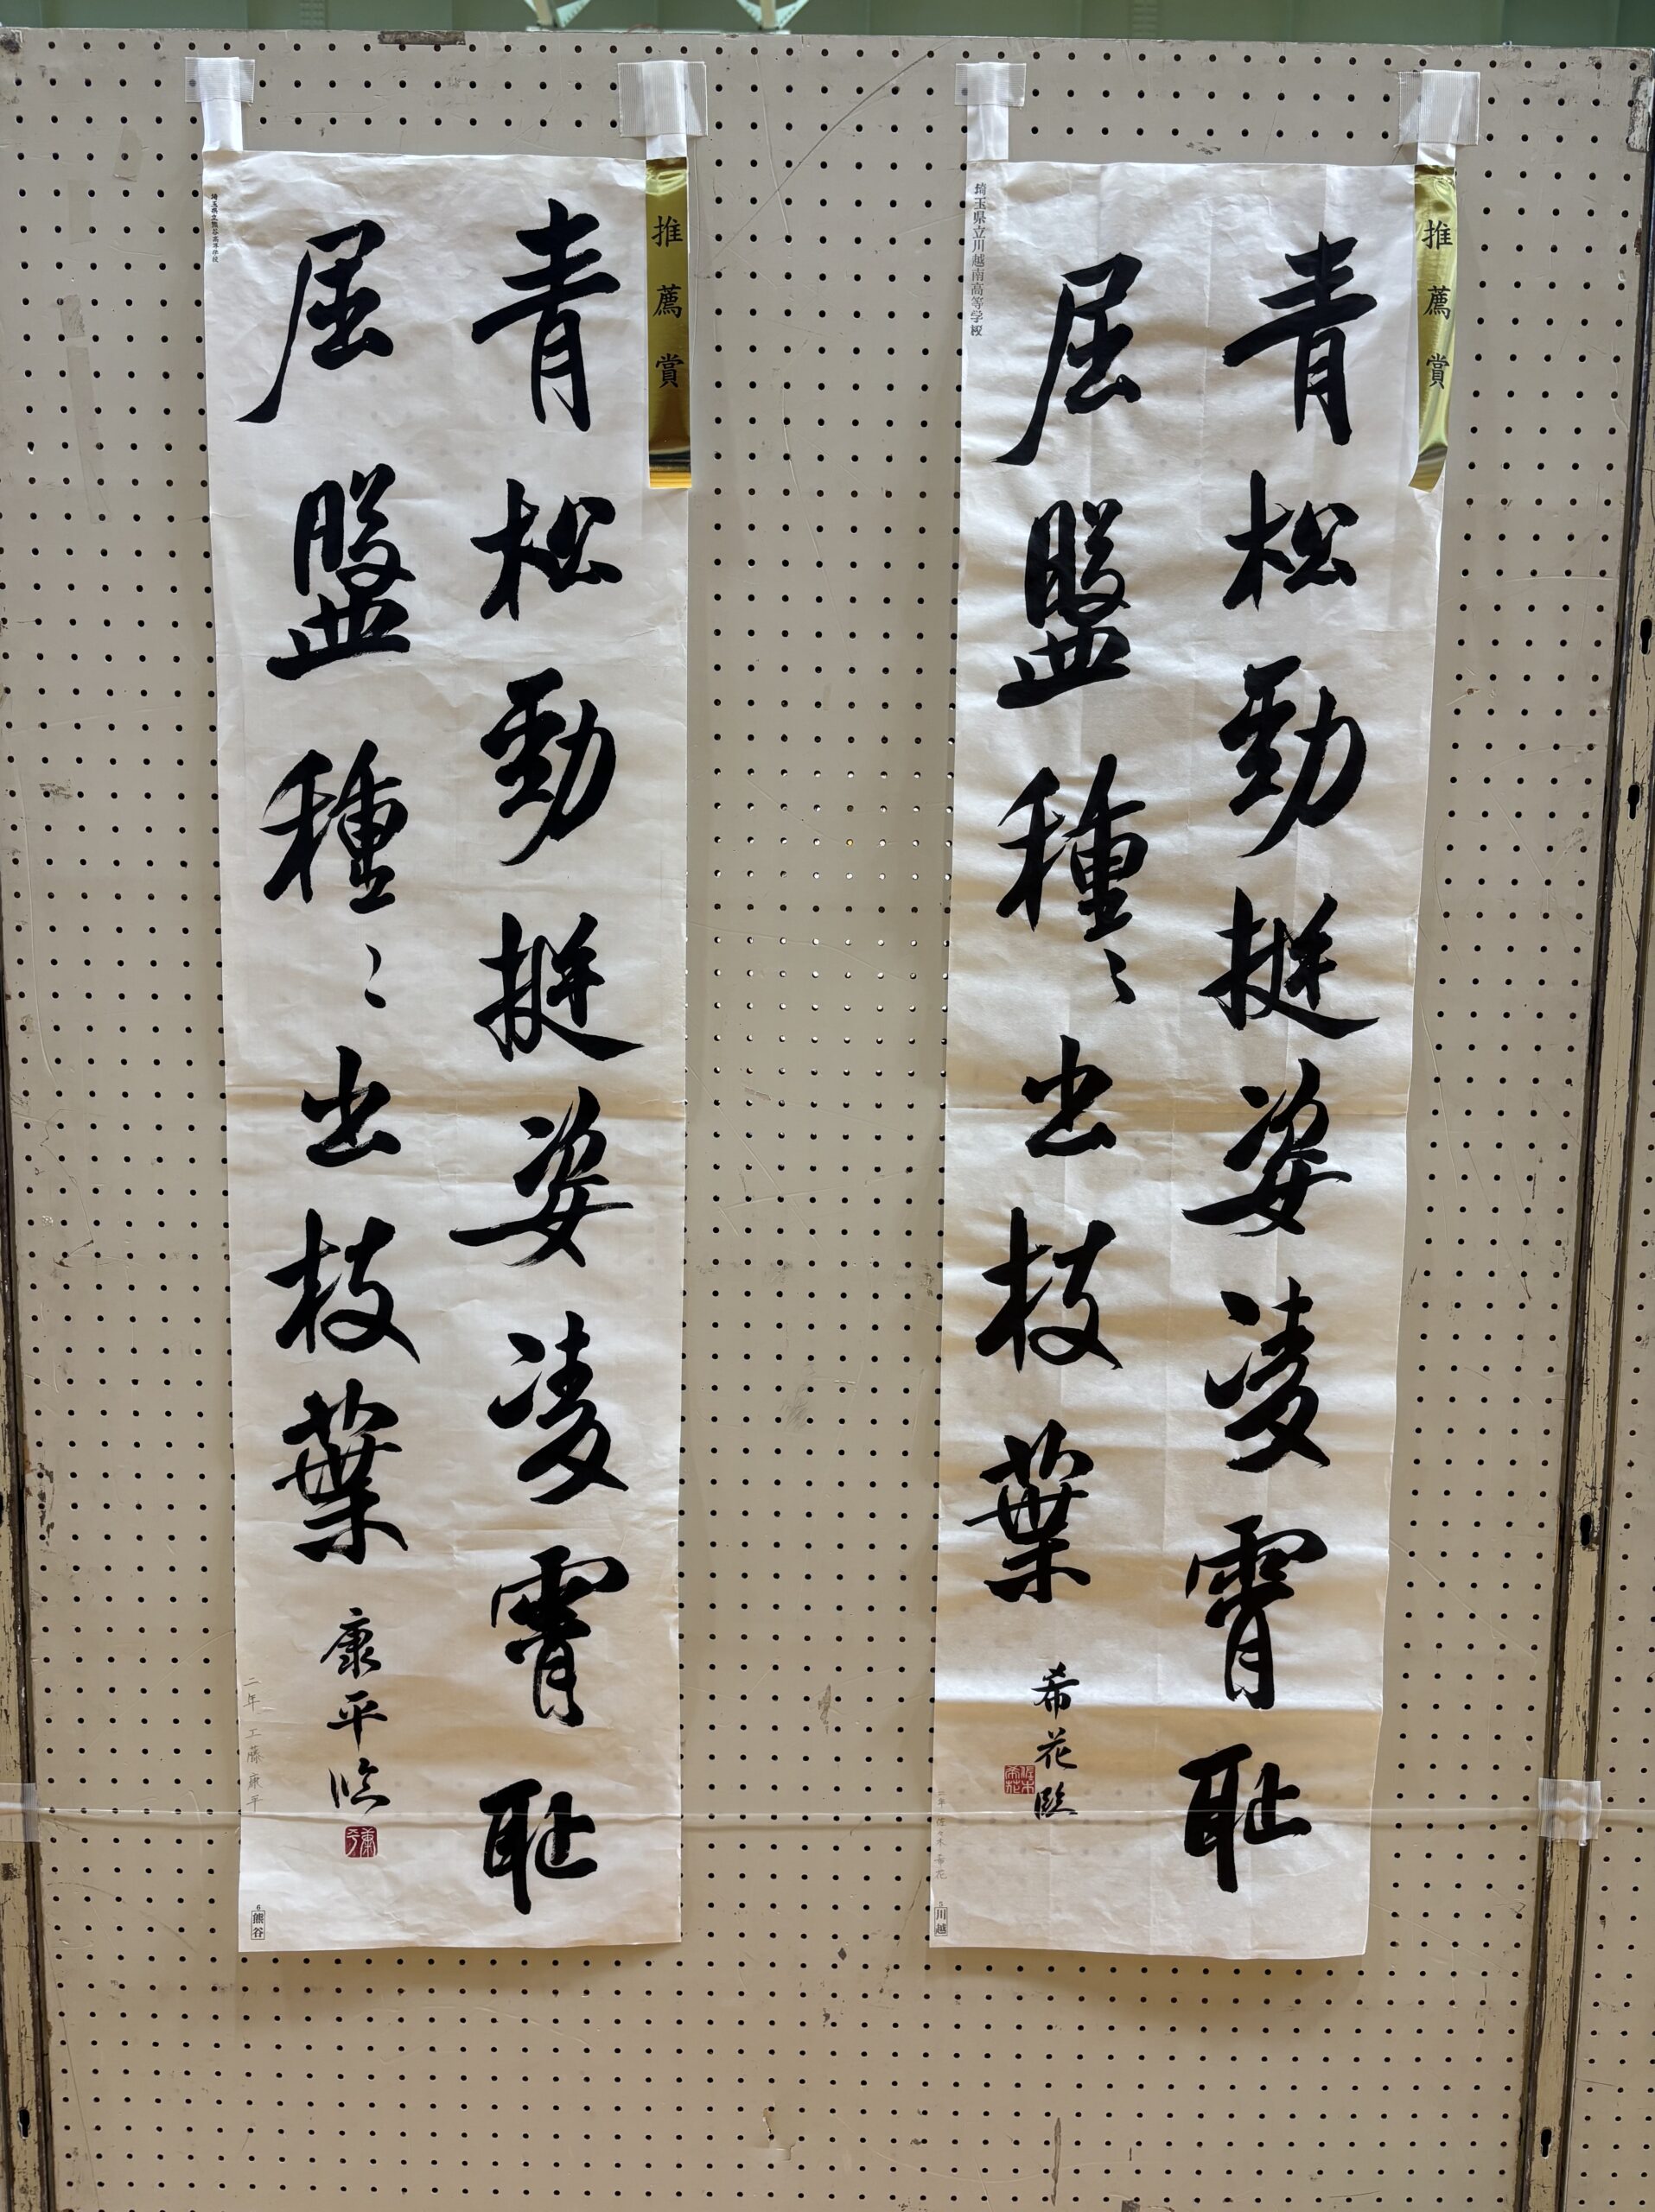 推薦賞
青松勁挺姿凌霄恥
屈盤種〻出枝葉
希花臨
埼玉県立川越南高等学校
二年 佐々木希花
川越
推薦賞
青松勁挺姿凌霄恥
屈盤種〻出枝葉
康平臨
埼玉県立熊谷高等学校
二年 工藤康平
6
熊谷